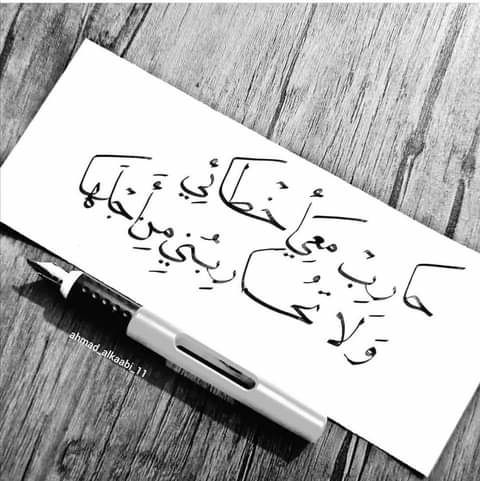 حَارِبْ مَعِي أَخْطَائي
وَلَا تُحَارِبُني مِن أَجْلِها
ahmad_alkaabi_11